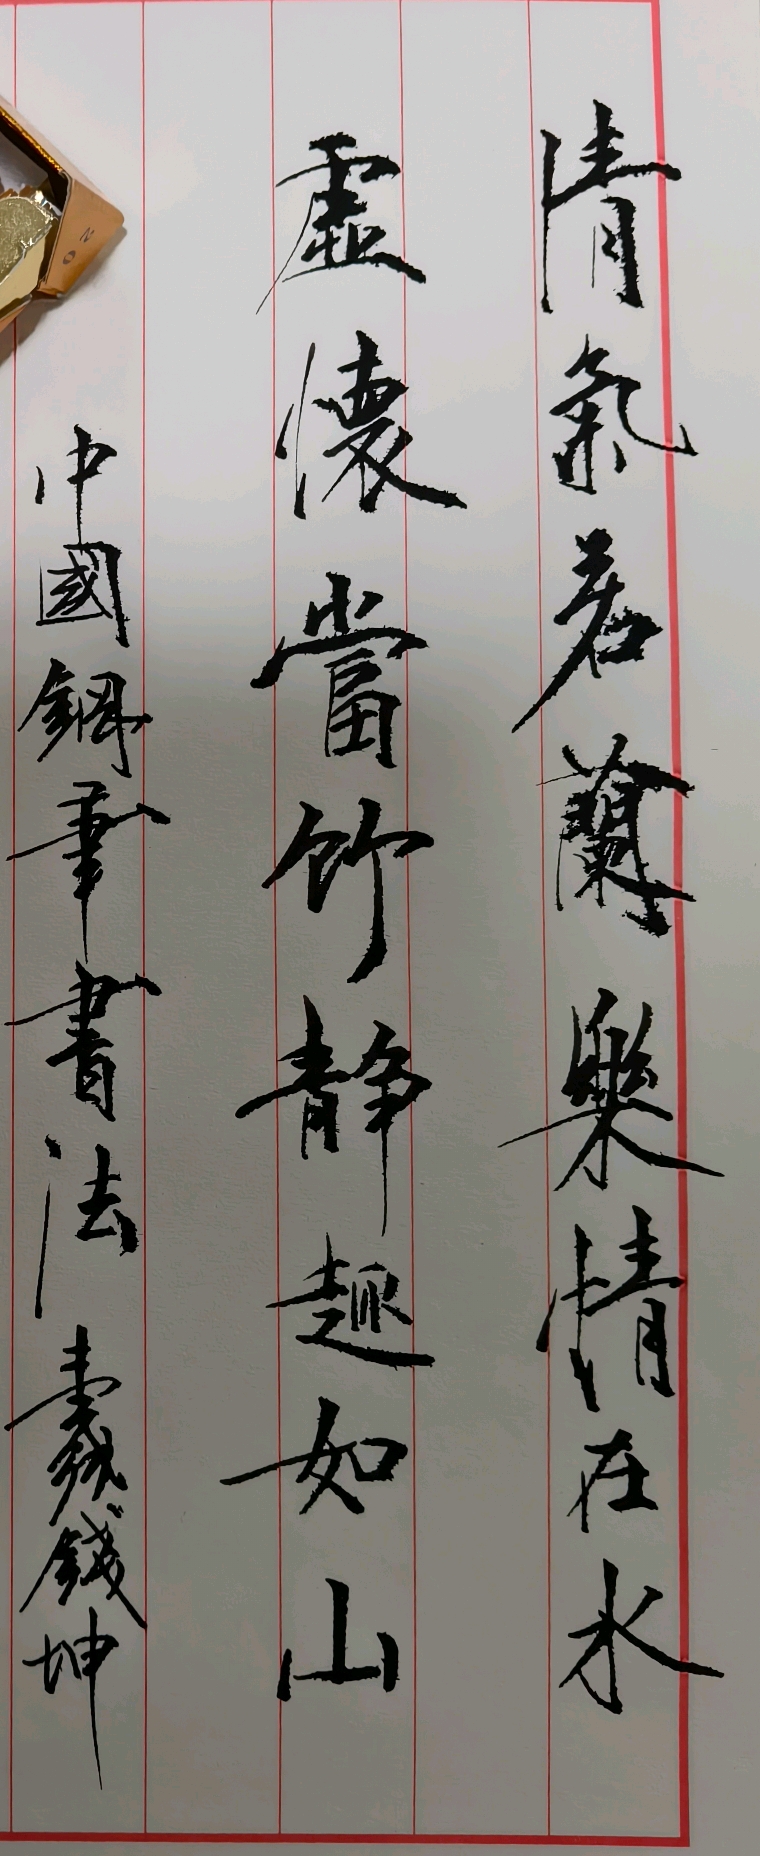 清氣若蘭樂情在水
虛懷當竹靜趣如山
中國鋼筆書法錢坤